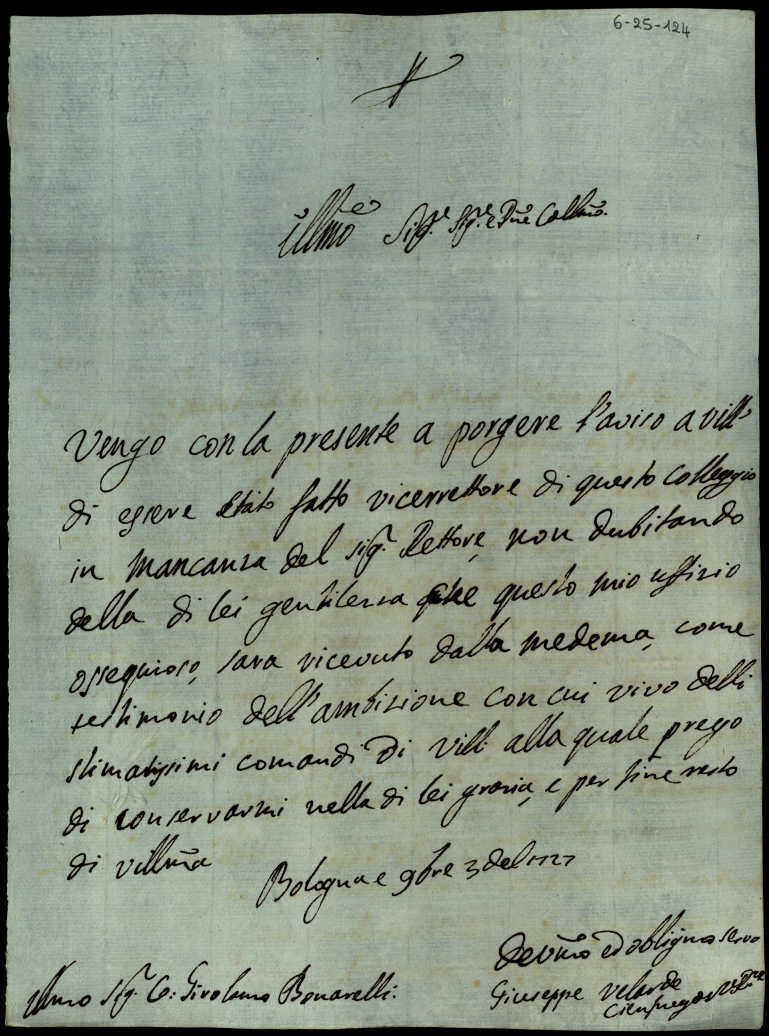 6-25-124
Illmo Sig.e Sig.e e Pne Collmo.
Vengo con la presente a porgere l'aviso a V Ill.
di essere stato fatto vicerrettore di questo Colleggio
in mancanza del sig.r Rettore, non dubitando
della di lei gentilezza che questo mio uffizio
ossequioso, sara ricevuto dalla medema, come
testimonio dell'ambizione con cui vivo delli
stimatissimi comandi di V Ill. alla quale prego
di conservarmi nella di lei grazia, e per fine resto
di V Illma
Bologna e 9bre 3 del 1727
Illmo Sig. C: Girolamo Bonarelli.
Devmo ed obligmo servo
Giuseppe Velarde
Cienfuegos